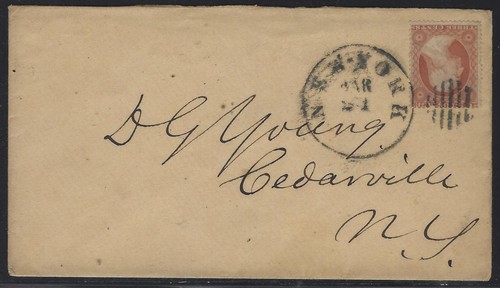 NEW-YORK
MAR
D G Young,
Cedarville
N.Y.